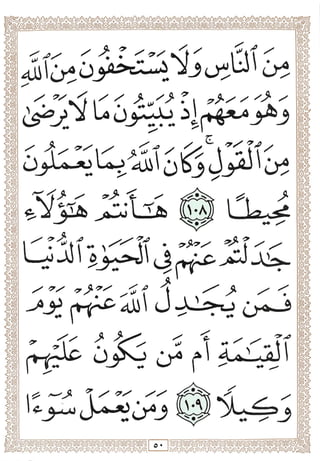 مِنَ ٱلنَّاسِ وَلَا يَسْتَخْفُونَ مِنَ ٱللَّهِ
وَهُوَ مَعَهُمْ إِذْ يُبَيِّتُونَ مَا لَا يَرْضَىٰ
مِنَ ٱلْقَوْلِ ۚ وَكَانَ ٱللَّهُ بِمَا يَعْمَلُونَ
مُحِيطًا ١٠٨ هَٰٓأَنتُمْ هَٰٓؤُلَآءِ
جَٰدَلْتُمْ عَنْهُمْ فِى ٱلْحَيَوٰةِ ٱلدُّنْيَا
فَمَن يُجَٰدِلُ ٱللَّهَ عَنْهُمْ يَوْمَ
ٱلْقِيَٰمَةِ أَم مَّن يَكُونُ عَلَيْهِمْ
وَكِيلًا ١٠٩ وَمَن يَعْمَلْ سُوٓءًا
٥٠